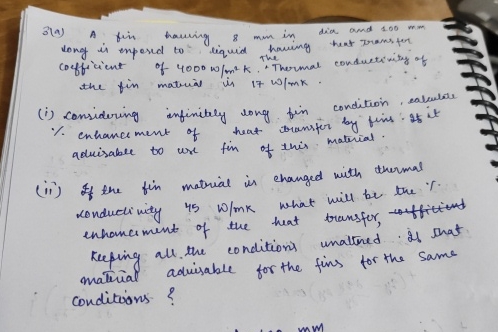 3(a) A fin having 8 mm in dia and 100 mm
long is exposed to liquid having heat transfer
coefficient of 4000 W/m² K. The Thermal conductivity of
the fin material is 17 W/mK.
(i) Considering infinitely long fin condition, calculate
% enhancement of heat transfer by fins. If it
advisable to use fin of this material.
(ii) If the fin material is changed with thermal
conductivity 45 W/mK what will be the %
enhancement of the heat transfer, coefficient
Keeping all the conditions unaltered. If that
material advisable for the fins for the same
conditions ?
mm